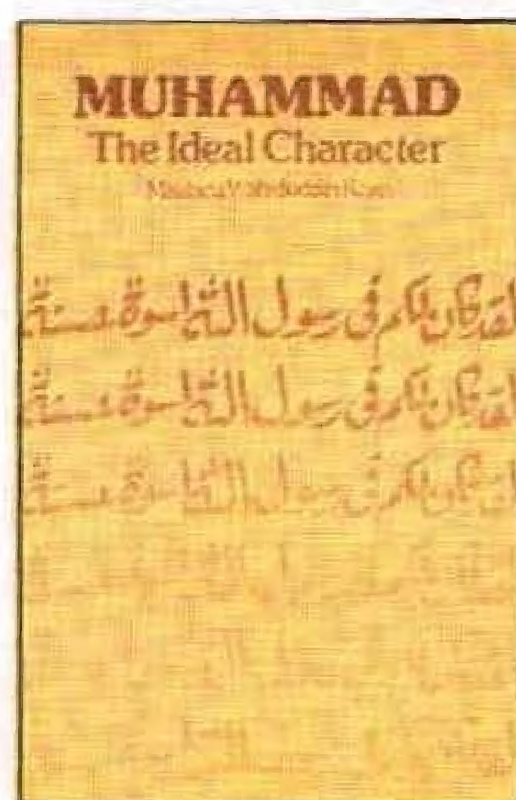 MUHAMMAD
The Ideal Character
Maulana Wahiduddin Khan
لقد كان لكم في رسول الله اسوة حسنة
لقد كان لكم في رسول الله اسوة حسنة
لقد كان لكم في رسول الله اسوة حسنة